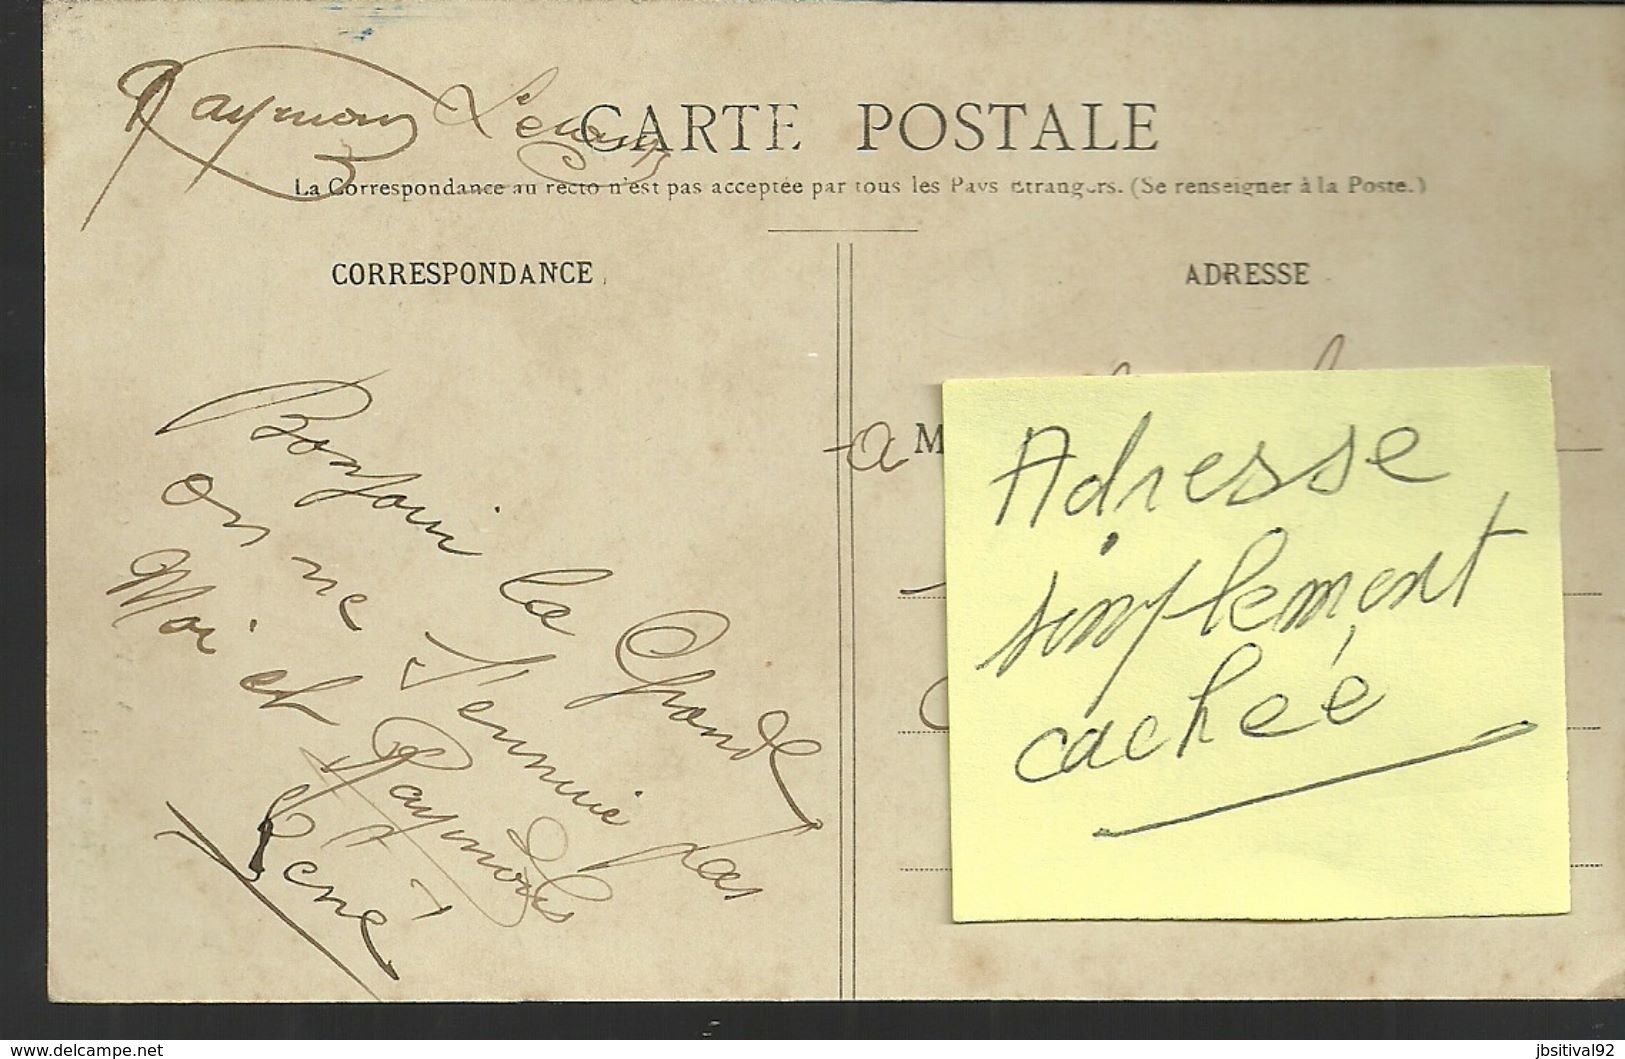 Raymond
CARTE POSTALE
La Correspondance au recto n'est pas acceptée par tous les Pays étrangers. (Se renseigner à la Poste.)
CORRESPONDANCE
Bonjour la Grande
on ne s'ennuie pas
Moi et Raymond
René
ADRESSE
a M
Adresse
simplement
cachée
www.delcampe.net
jbsitival92